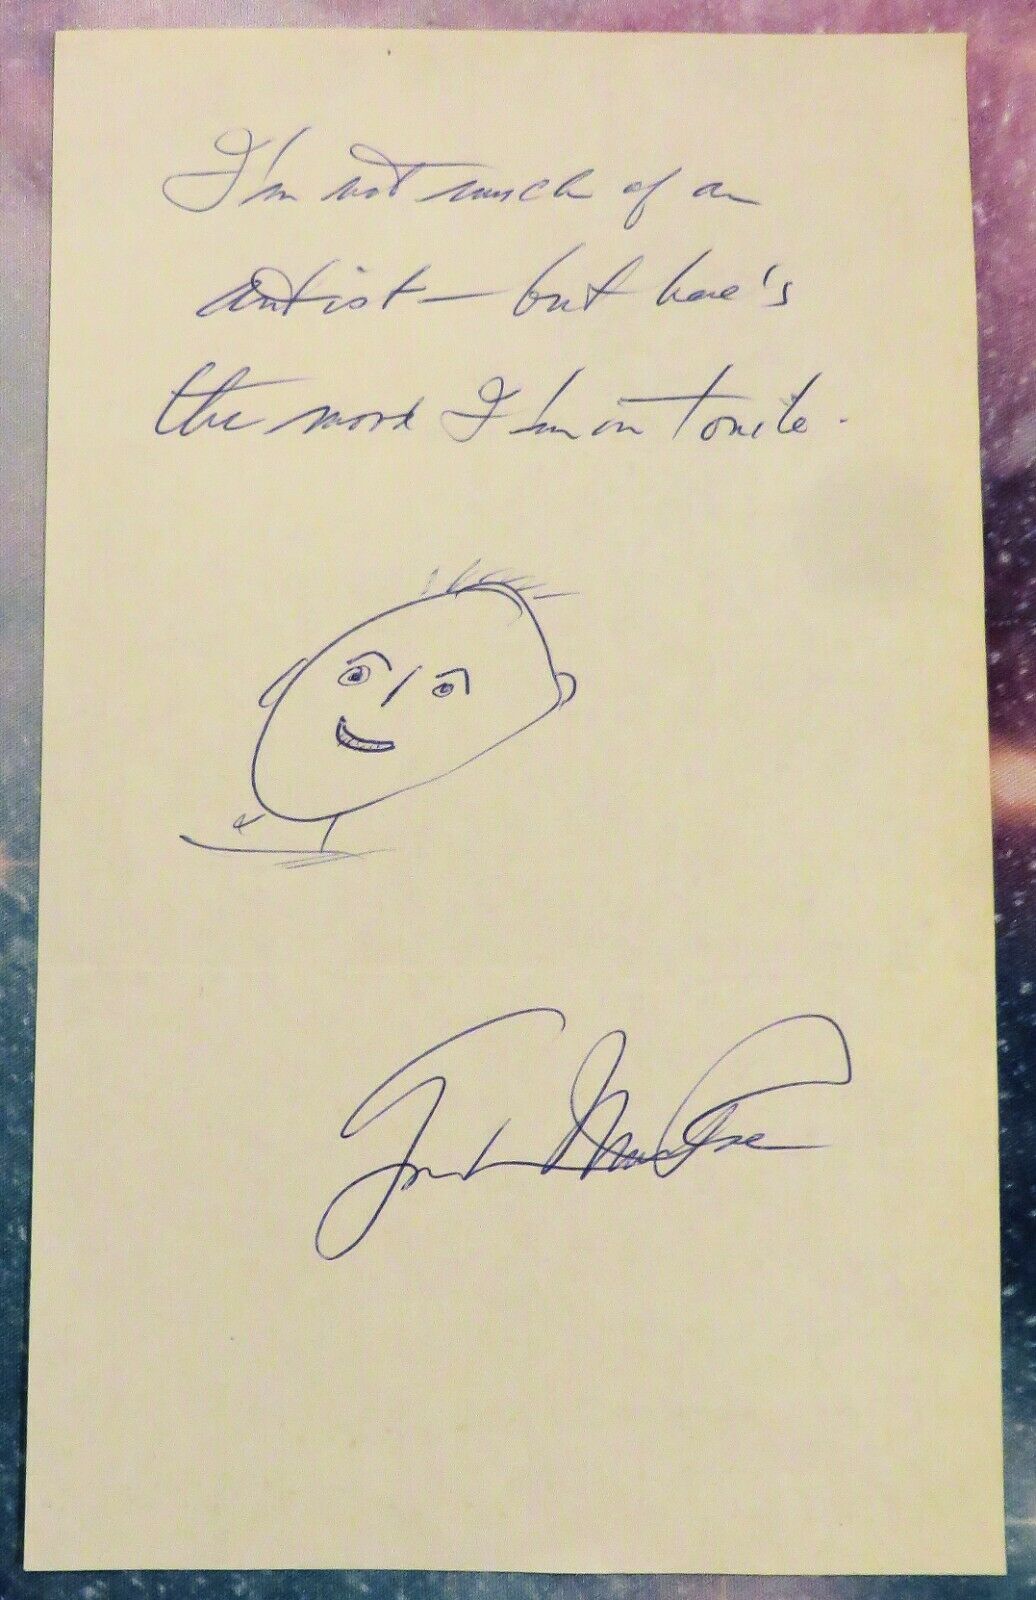 I'm not much of an
artist – but here's
the mood I'm in tonite.